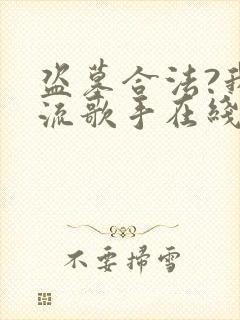 盗墓合法?我
流歌手在綫
不要掃雪